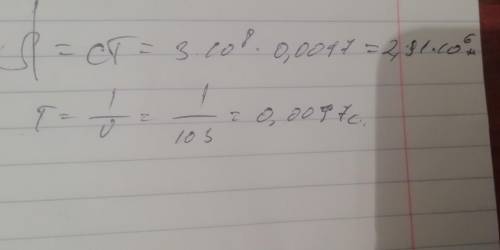 λ = cT = 3·10⁸·0,0097 = 2,91·10⁶ м
T = 1/υ = 1/103 = 0,0097 с.